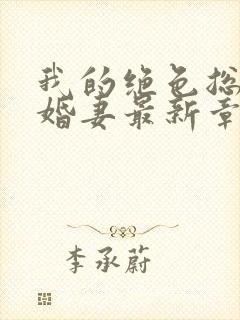 我的绝色总
婚妻最新章
李承蔚